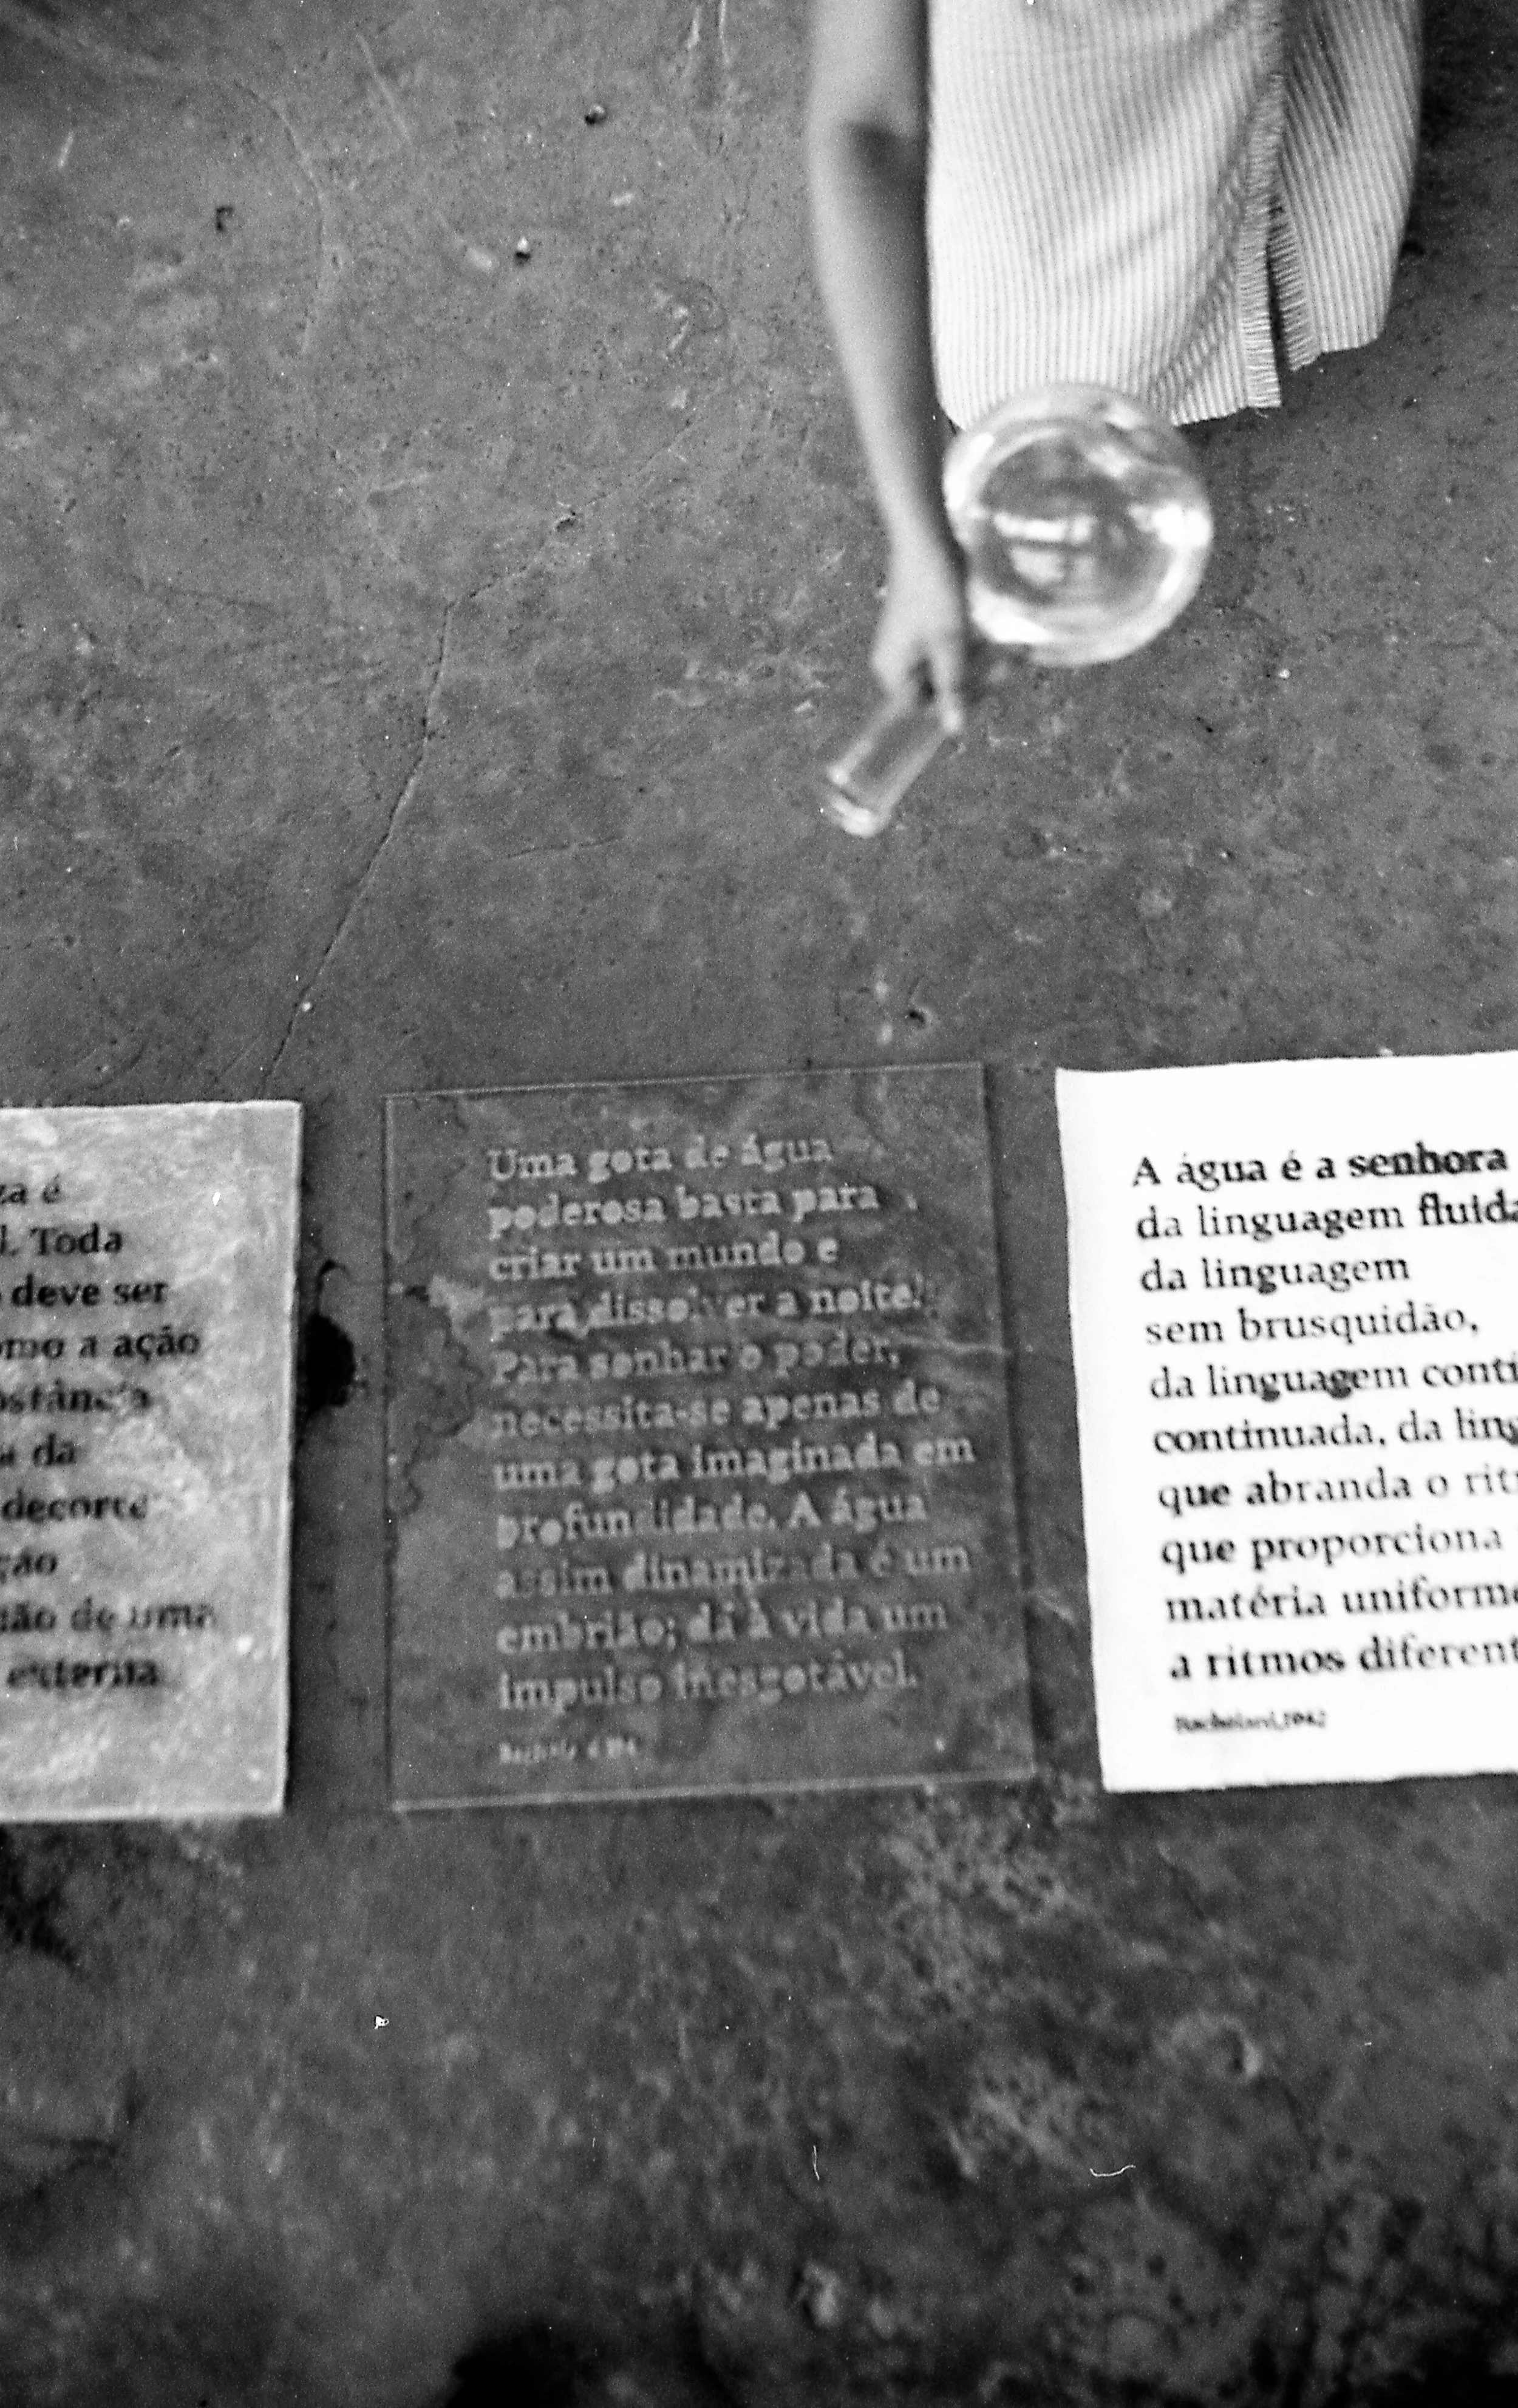 za é
l. Toda
deve ser
omo a ação
ostância
a da
decorre
ção
não de uma
externa
Uma gota de água
poderosa basta para
criar um mundo e
para dissolver a noite.
Para sonhar o poder,
necessita-se apenas de
uma gota imaginada em
profundidade. A água
assim dinamizada é um
embrião; dá à vida um
impulso inesgotável.
A água é a senhora
da linguagem fluida
da linguagem
sem brusquidão,
da linguagem contí
continuada, da ling
que abranda o rit
que proporciona
matéria uniforme
a ritmos diferent
Bachelard, 1942